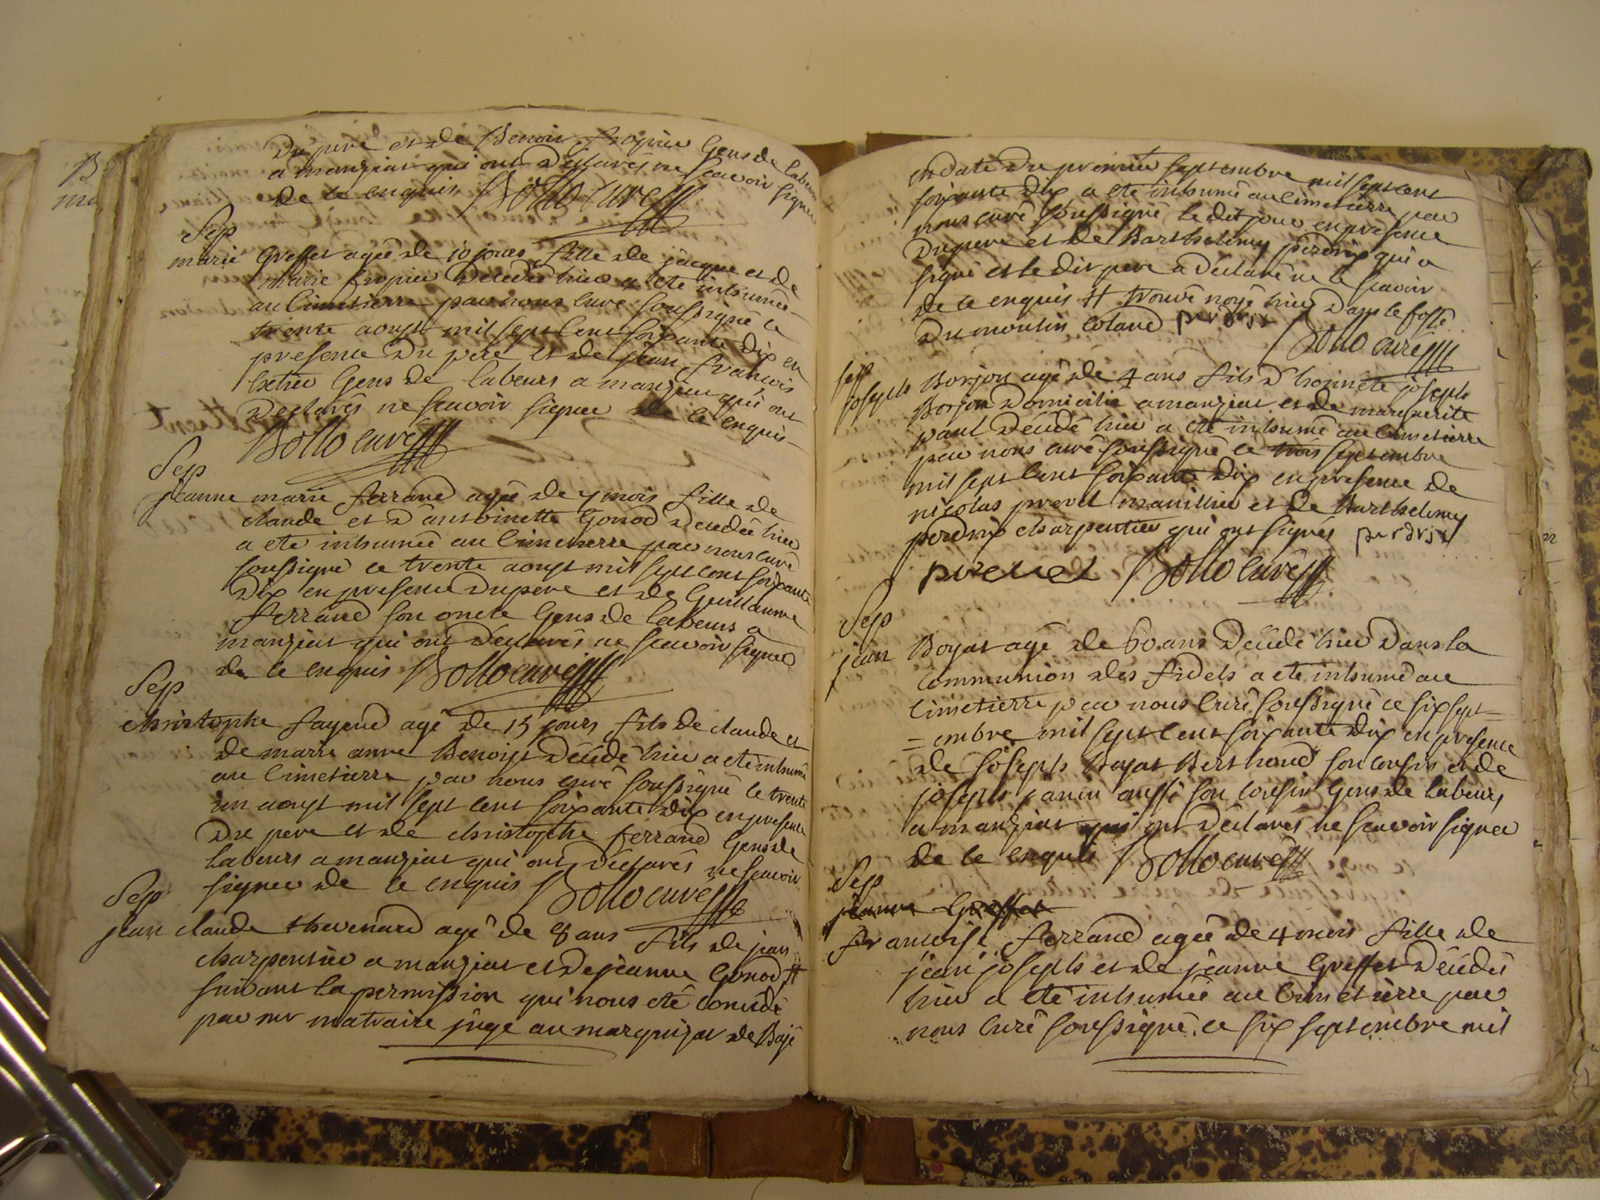 Du pere et de Benoit fropier Gens de labeurs
a manziat qui ont Déclarés ne scavoir signer
de ce enquis Bollo curé
Sep
marie Greffet agée de 10 jours fille de jacque et de
marie fropier Décédée hier a été inhumée
au Cimetierre par nous Curé soussigné le
trente aoust mil sept cent soixante dix en
presence Du pere et de jean francois
Gens de labeurs a manziat qui ont
Déclarés ne scavoir signer de ce enquis
Bollo curé
Sep
jeanne marie ferrand agée de mois fille de
claude et d'antoinette Gonod décédée hier
a été inhumée au Cimetierre par nous curé
soussigné ce trente aoust mil sept cent soixante
Dix en presence du pere et de Guillaume
ferrand son oncle Gens de labeurs a
manziat qui ont déclarés ne scavoir signer
de ce enquis Bollo curé
Sep
christophe fayend agé de 15 jours fils de claude et
de marie anne Benoist décédé hier a été inhumé
au Cimetierre par nous curé soussigné le trente
un aoust mil sept cent soixante dix en presence
Du pere et de christophe ferrand Gens de
labeurs a manziat qui ont Déclarés ne scavoir
signer de ce enquis Bollo curé
Sep
jean claude thevenard agé de 8 ans fils de jean
charpentier a manziat et de jeanne Gonod #
suivant la permission qui nous été
par mr juge au marquisat de Bagé
en date Du premier septembre mil sept cent
soixante dix a été inhumé au Cimetierre par
nous curé soussigné le dit jour en presence
Du pere et de Barthelemy perdrix qui a
signé et le dit pere a Déclaré ne le scavoir
de ce enquis # trouvé noyé hier Dans le fossé
Du moulin Coland perdrix
Bollo curé
Sep
joseph Borjon agé de 4 ans fils d'honnete joseph
Borjon Domicilié a manziat et de marguerite
paul décédé hier a été inhumé au Cimetierre
par nous curé soussigné ce trois septembre
mil sept cent soixante dix en presence de
nicolas prevel et de Barthelemy
perdrix charpentier qui ont signés perdrix
prevel Bollo curé
Sep
jean Boyat agé de 60 ans Décédé hier Dans la
Communion des fidels a été inhumé au
Cimetierre par nous Curé soussigné ce six sept=
=embre mil sept cent soixante dix en presence
de joseph Boyat Berthoud son cousin et de
joseph janin aussi son cousin Gens de labeurs
a manziat qui ont déclarés ne scavoir signer
de ce enquis Bollo curé
Sep
jeanne Greffet
francoise ferrand agée de 4 mois fille de
jean joseph et de jeanne Greffet Décédée
hier a été inhumée au Cimetierre par
nous Curé soussigné ce six septembre mil